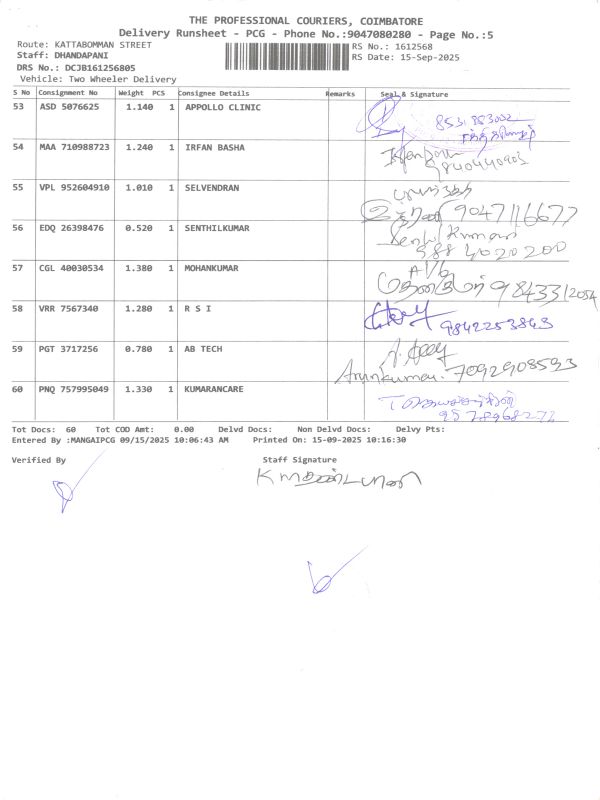 THE PROFESSIONAL COURIERS, COIMBATORE
Delivery Runsheet - PCG - Phone No.:9047080280 - Page No.:5
Route: KATTABOMMAN STREET RS No.: 1612568
Staff: DHANDAPANI RS Date: 15-Sep-2025
DRS No.: DCJB161256805
Vehicle: Two Wheeler Delivery
S No Consignment No Weight PCS Consignee Details Remarks Seal & Signature
53 ASD 5076625 1.140 1 APPOLLO CLINIC
54 MAA 710988723 1.240 1 IRFAN BASHA
9840440903
55 VPL 952604910 1.010 1 SELVENDRAN
9047116677
56 EDQ 26398476 0.520 1 SENTHILKUMAR
57 CGL 40030534 1.380 1 MOHANKUMAR
58 VRR 7567340 1.280 1 R S I
9842253843
59 PGT 3717256 0.780 1 AB TECH
Arunkumar. 7092908593
60 PNQ 757995049 1.330 1 KUMARANCARE
Tot Docs: 60 Tot COD Amt: 0.00 Delvd Docs: Non Delvd Docs: Delvy Pts:
Entered By :MANGAIPCG 09/15/2025 10:06:43 AM Printed On: 15-09-2025 10:16:30
Verified By Staff Signature